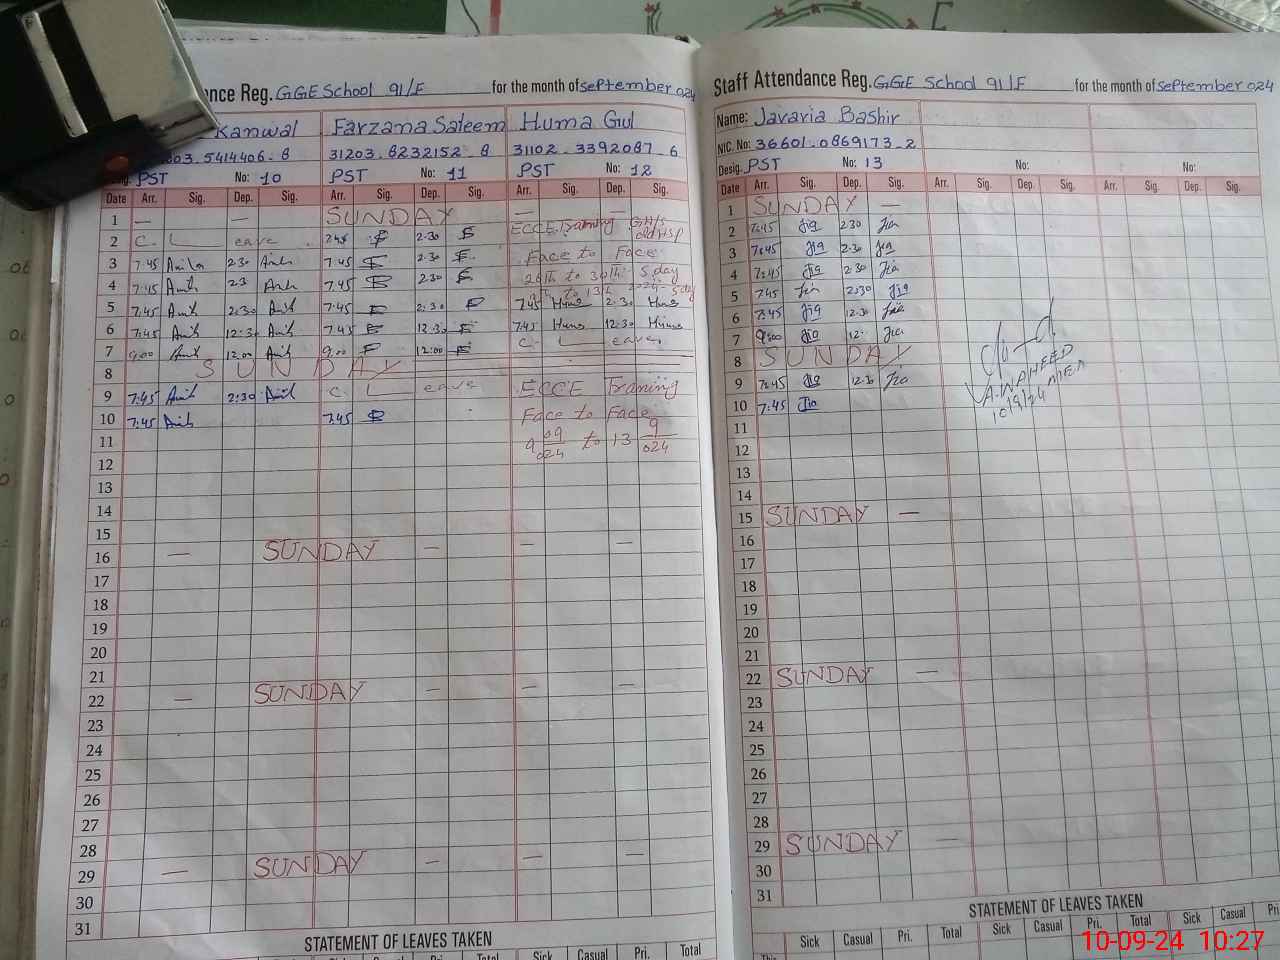 nce Reg. GGE School 91/F for the month of september 024
Kanwal Farzana Saleem Huma Gul
303.5414406.8 31203.8232152.8 31102.3392087.6
Desig. PST No: 10 PST No: 11 PST No: 12
Date Arr. Sig. Dep. Sig. Arr. Sig. Dep. Sig. Arr. Sig. Dep. Sig.
1 — — SUNDAY — —
2 C. Leave 7:45 2:30 ECCE Training
3 7:45 2:30 7:45 2:30 Face to Face
4 7:45 2:3 7:45 2:30 26th to 30th 5 day
5 7:45 2:30 7:45 2:30 7:45 Huma 2:30 Huma
6 7:45 12:30 7:45 12:30 7:45 Huma 12:30 Huma
7 9:00 12:00 9:00 12:00 C. Leave
8 SUNDAY
9 7:45 2:30 C. Leave ECCE Training
10 7:45 7:45 Face to Face
11 9 09 024 to 13 9 024
12
13
14
15
16 — SUNDAY — — —
17
18
19
20
21
22 — SUNDAY — — —
23
24
25
26
27
28
29 — SUNDAY — — —
30
31
STATEMENT OF LEAVES TAKEN
Sick Casual Pri. Total Sick Casual Pri. Total
Staff Attendance Reg. GGE School 91/F for the month of september 024
Name: Javaria Bashir
NIC. No: 36601.0869173_2
Desig. PST No: 13 No: No:
Date Arr. Sig. Dep. Sig. Arr. Sig. Dep. Sig. Arr. Sig. Dep. Sig.
1 SUNDAY —
2 7:45 Jia 2:30 Jia
3 7:45 Jia 2:30 Jia
4 7:45 Jia 2:30 Jia
5 7:45 Jia 2:30 Jia
6 7:45 Jia 12:30 Jia
7 9:00 Jia 12: Jia
8 SUNDAY
9 7:45 Jia 12:3 Jia
10 7:45 Jia
A.WAHEED
10/9/24 MEA
11
12
13
14
15 SUNDAY —
16
17
18
19
20
21
22 SUNDAY —
23
24
25
26
27
28
29 SUNDAY —
30
31
STATEMENT OF LEAVES TAKEN
Sick Casual Pri. Total Sick Casual Pri. Total Sick Casual Pri
10-09-24 10:27